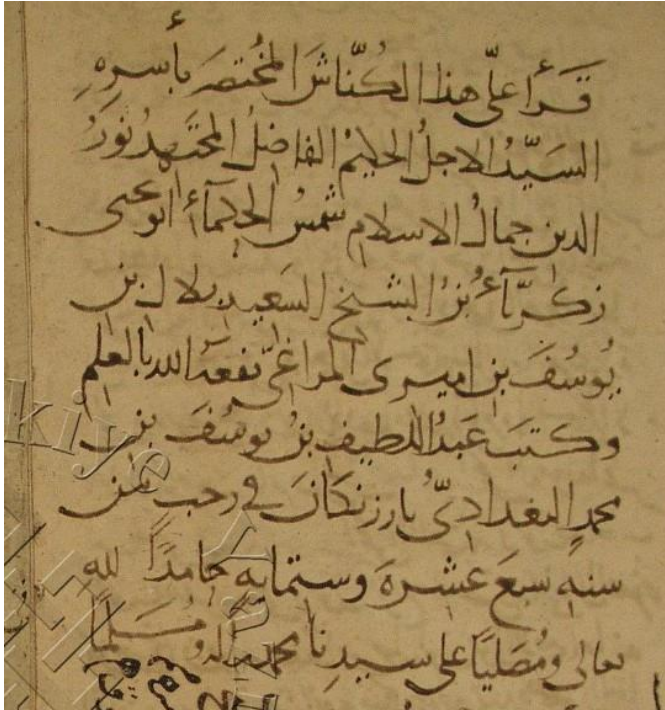 قرأ علي هذا الكنّاش المختصر بأسره
السيّد الاجل الحكيم الفاضل المجتهد نور
الدين جمال الاسلام شمس الحكمآء ابو يحيى
زكريّآء بن الشيخ السعيد بلال بن
يوسف بن اميرى المراغيّ نفعه الله بالعلم
وكتب عبد اللطيف بن يوسف بن
محمد البغداديّ بارزنكان في رجب من
سنه سبع عشره وستمايه حامدًا لله
تعالى ومصليًا على سيدنا محمد وآله ومسلّمًا